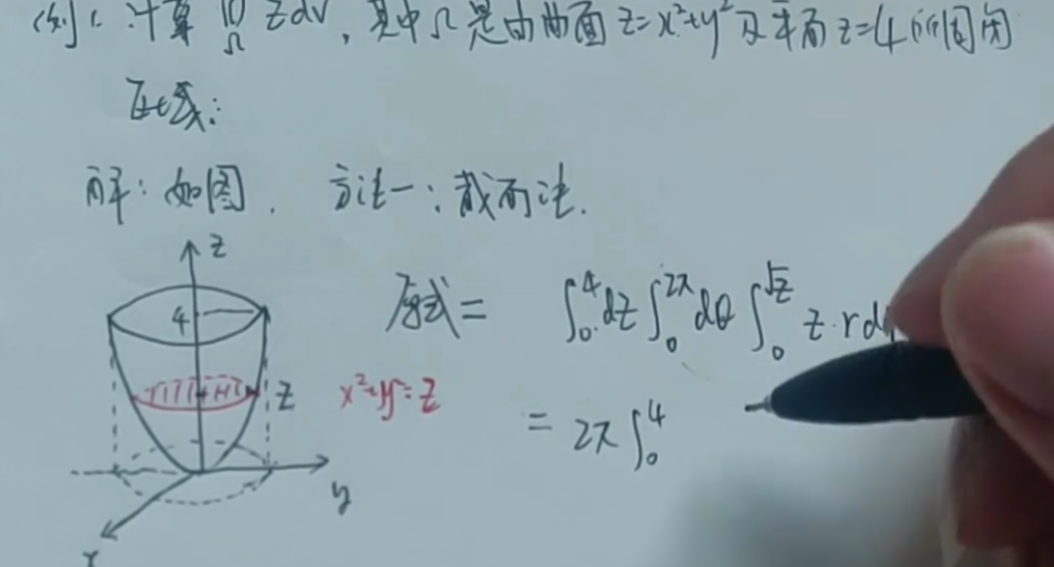 例1: 计算 ∭_Ω z dv, 其中Ω是由曲面 z=x²+y² 及平面 z=4 所围闭
区域:
解: 如图. 方法一: 截面法.
z
4
z
y
x
x²+y²=z
原式 = ∫₀⁴ dz ∫₀^{2π} dθ ∫₀^{√z} z·r d
= 2π ∫₀⁴